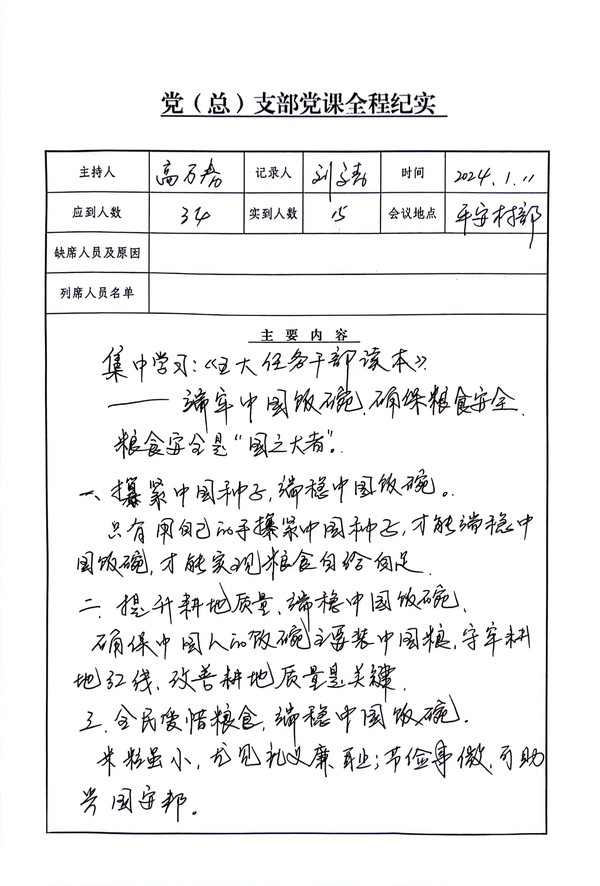 党（总）支部党课全程纪实
主持人 高万春 记录人 时间 2024.1.11
应到人数 34 实到人数 15 会议地点 平安村部
缺席人员及原因
列席人员名单
主要内容
集中学习：《五大任务干部读本》
——端牢中国饭碗，确保粮食安全
粮食安全是“国之大者”。
一、攥紧中国种子，端稳中国饭碗。
只有用自己的手攥紧中国种子，才能端稳中
国饭碗，才能实现粮食自给自足
二、提升耕地质量，端稳中国饭碗，
确保中国人的饭碗主要装中国粮，守牢耕
地红线，改善耕地质量是关键，
三、全民爱惜粮食，端稳中国饭碗，
米粒虽小，尤见礼义廉耻；节俭事微，可助
兴国安邦。